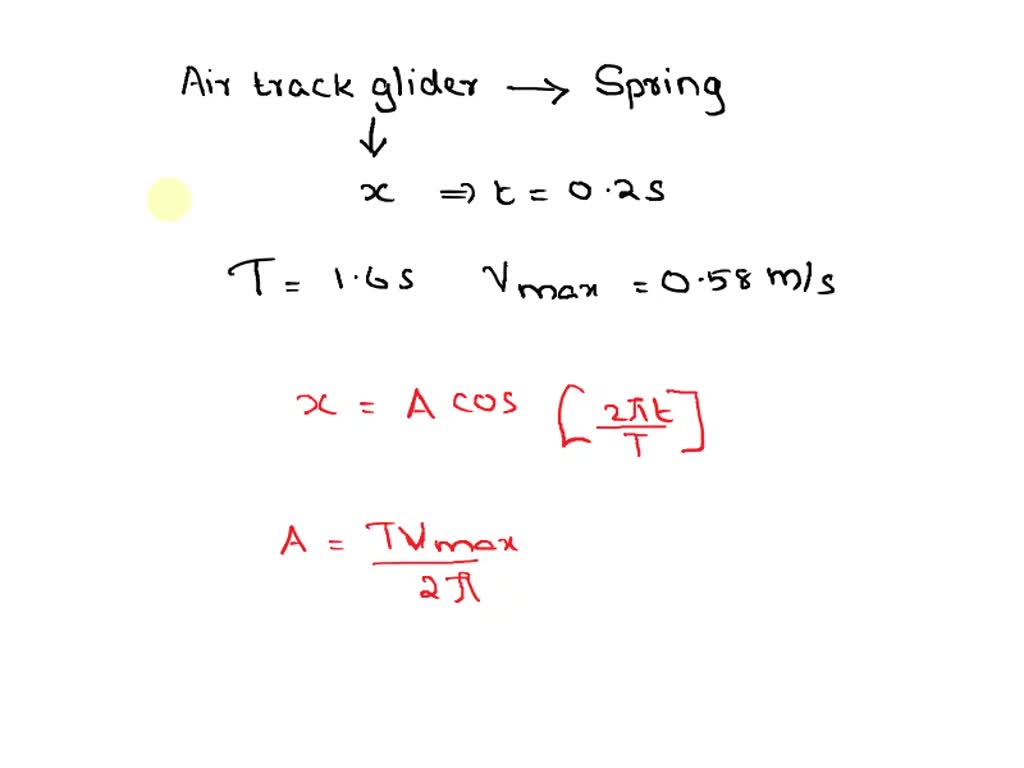 Air track glider → Spring
↓
x ⇒ t = 0.2s
T = 1.6s Vmax = 0.58 m/s
x = A cos [2πt/T]
A = TVmax/2π